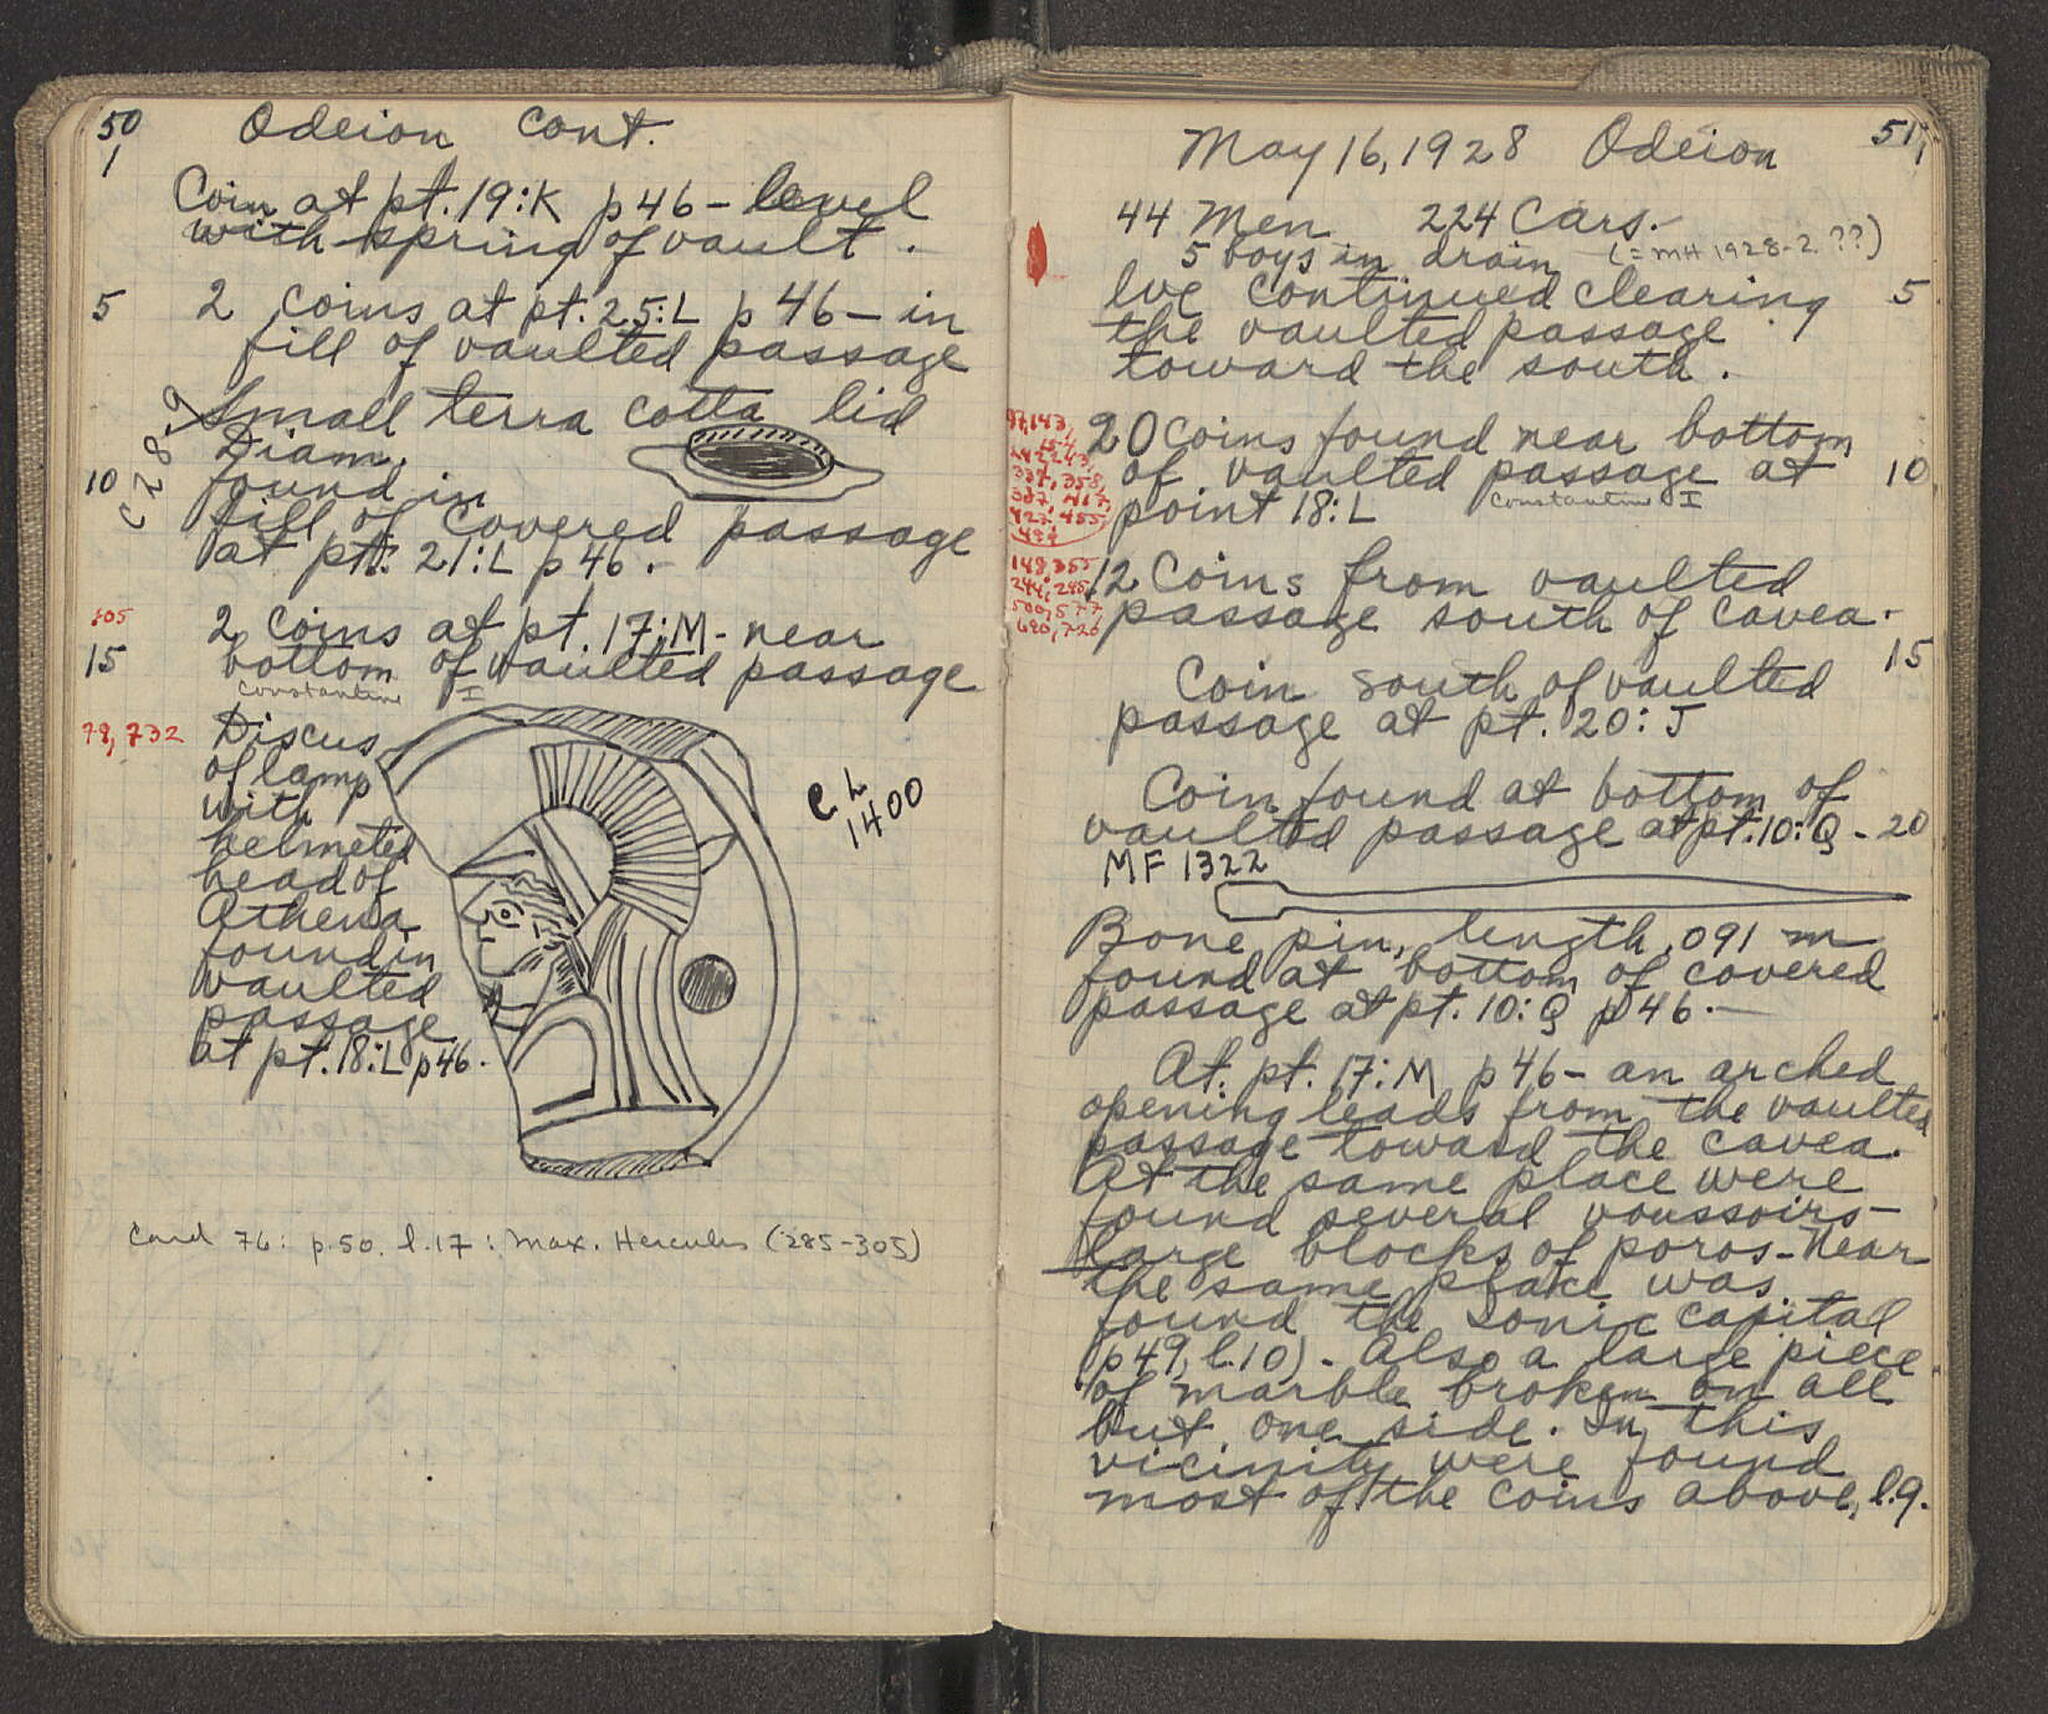 50
1
Odeion cont.
Coin at pt. 19:K p 46 - level
with spring of vault.
5
2 coins at pt. 25:L p 46 - in
fill of vaulted passage
C 28-9
Small terra cotta lid
Diam.
10
found in
fill of covered passage
at pt. 21:L p 46.
105
2 coins at pt. 17:M - near
15
bottom of vaulted passage
Constantine I
732
Discus
of lamp
with
helmeted
head of
Athena
found in
vaulted
passage
at pt. 18:L p 46.
1400
Card 76: p. 50. l. 17: Max. Hercules (285-305)
51
1
May 16, 1928 Odeion
44 Men 224 Cars.
5 boys in drain (= MH 1928-2 ??)
We continued clearing
5
the vaulted passage
toward the south.
20 coins found near bottom
of vaulted passage at
10
Constantine I
point 18:L
12 Coins from vaulted
passage south of cavea.
148, 355
15
Coin south of vaulted
passage at pt. 20:J
Coin found at bottom of
vaulted passage at pt. 10:Q -
20
MF 1322
Bone pin, length .091 m
found at bottom of covered
passage at pt. 10:Q p 46. —
At pt. 17:M p 46 - an arched
opening leads from the vaulted
passage toward the cavea.
At the same place were
found several voussoirs -
large blocks of poros - Near
the same place was
found the Ionic capital
p 49, l. 10). Also a large piece
of marble broken on all
but one side. In this
vicinity were found
most of the coins above, l. 9.